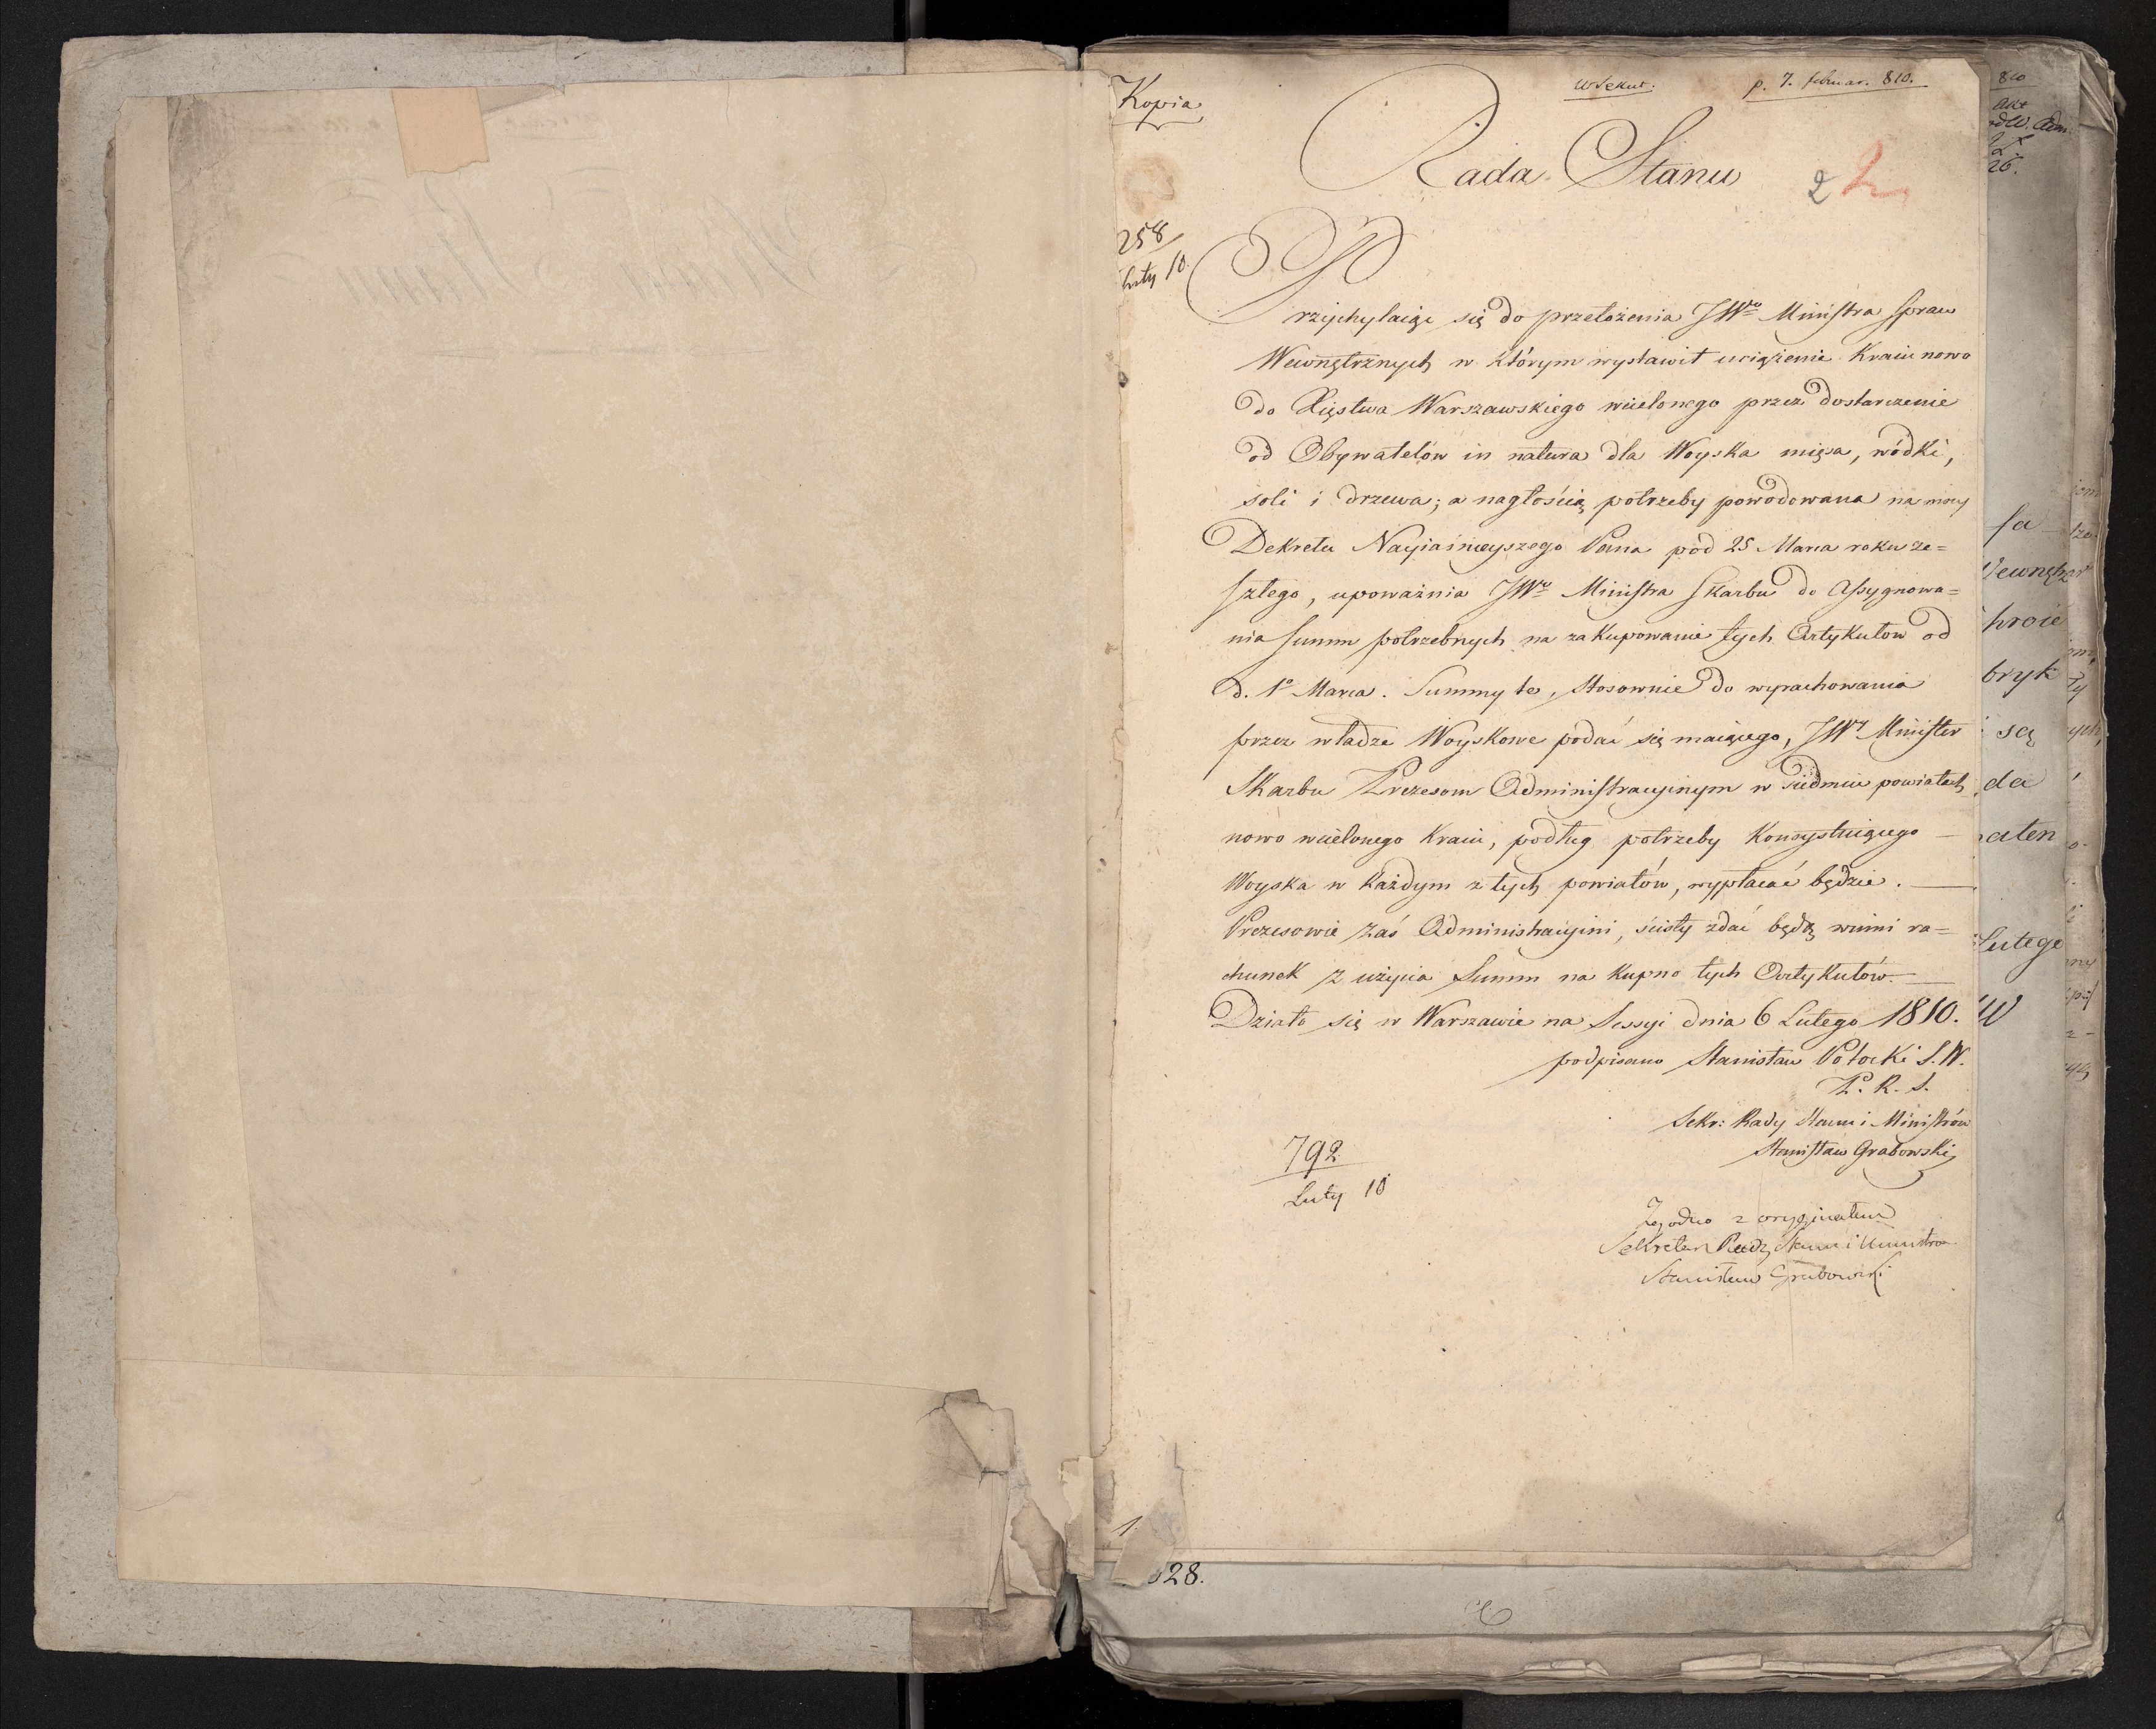 Kopia
p. 7. februar. 810.
Rada Stanu
2 2
258
Luty 10.
Przychylaiąc się do przełożenia JWo Ministra Spraw
Wewnętrznych w którym wystawił uciążenie Kraiu nowo
do Xięstwa Warszawskiego wcielonego przez dostarczenie
od Obywatelów in natura dla Woyska mięsa, wódki,
soli i drzewa; a nagłością potrzeby powodowana na mocy
Dekretu Nayiaśnieyszego Pana pod 25 Marca roku ze=
szłego, upoważnia JWo Ministra Skarbu do Assygnowa=
nia Summ potrzebnych na zakupowanie tych Artykułów od
d. 1o Marca. Summy te, stosownie do wyrachowania
przez władze Woyskowe podać się maiącego, JWy Minister
Skarbu Prezesom Administracyinym w siedmiu powiatach
nowo wcielonego Kraiu, podług potrzeby Konsystuiącego —
Woyska w każdym z tych powiatów, wypłacać będzie. —
Prezesowie zaś Administracyini, ścisły zdać będą winni ra=
chunek z użycia Summ na kupno tych Artykułów. —
Działo się w Warszawie na Sessyi dnia 6 Lutego 1810.
podpisano Stanisław Potocki S. W.
P. R. S.
Sekr: Rady Stanu i Ministrów
Stanisław Grabowski
792
Luty 10
Zgodno z oryginałem
Sekretarz Rady Stanu i Ministrów
Stanisław Grabowski
28.
810
26.
sa
bryk
są
da
aten
Lutego
W